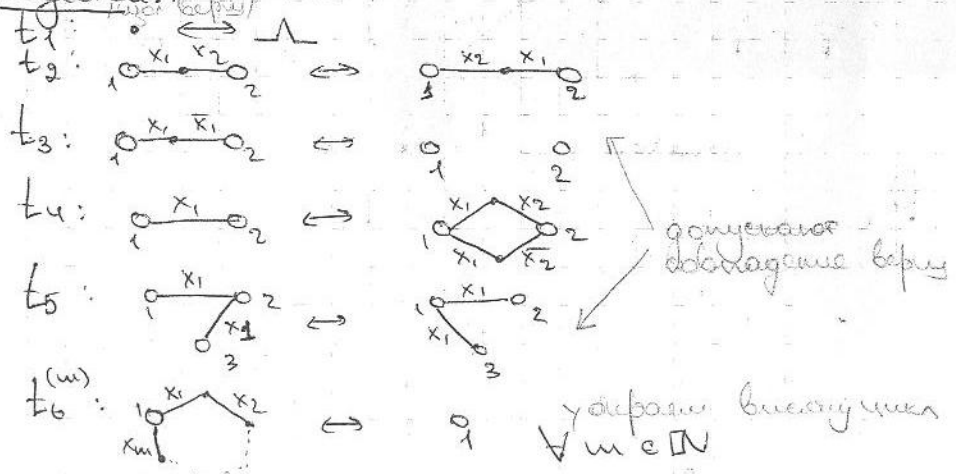 t1: ⟷
t2: 1 x1 x2 2 ⟷ 1 x2 x1 2
t3: 1 x1 x̄1 2 ⟷ 1 2
t4: 1 x1 2 ⟷ 1 x1 x2 x1 x̄2 2
допускают
совпадение верш
t5: 1 x1 2 x1 3 ⟷ 1 x1 2 x1 3
t6(m): 1 x1 x2 xm ⟷ 1 убираем висячий цикл
∀ m ∈ ℕ